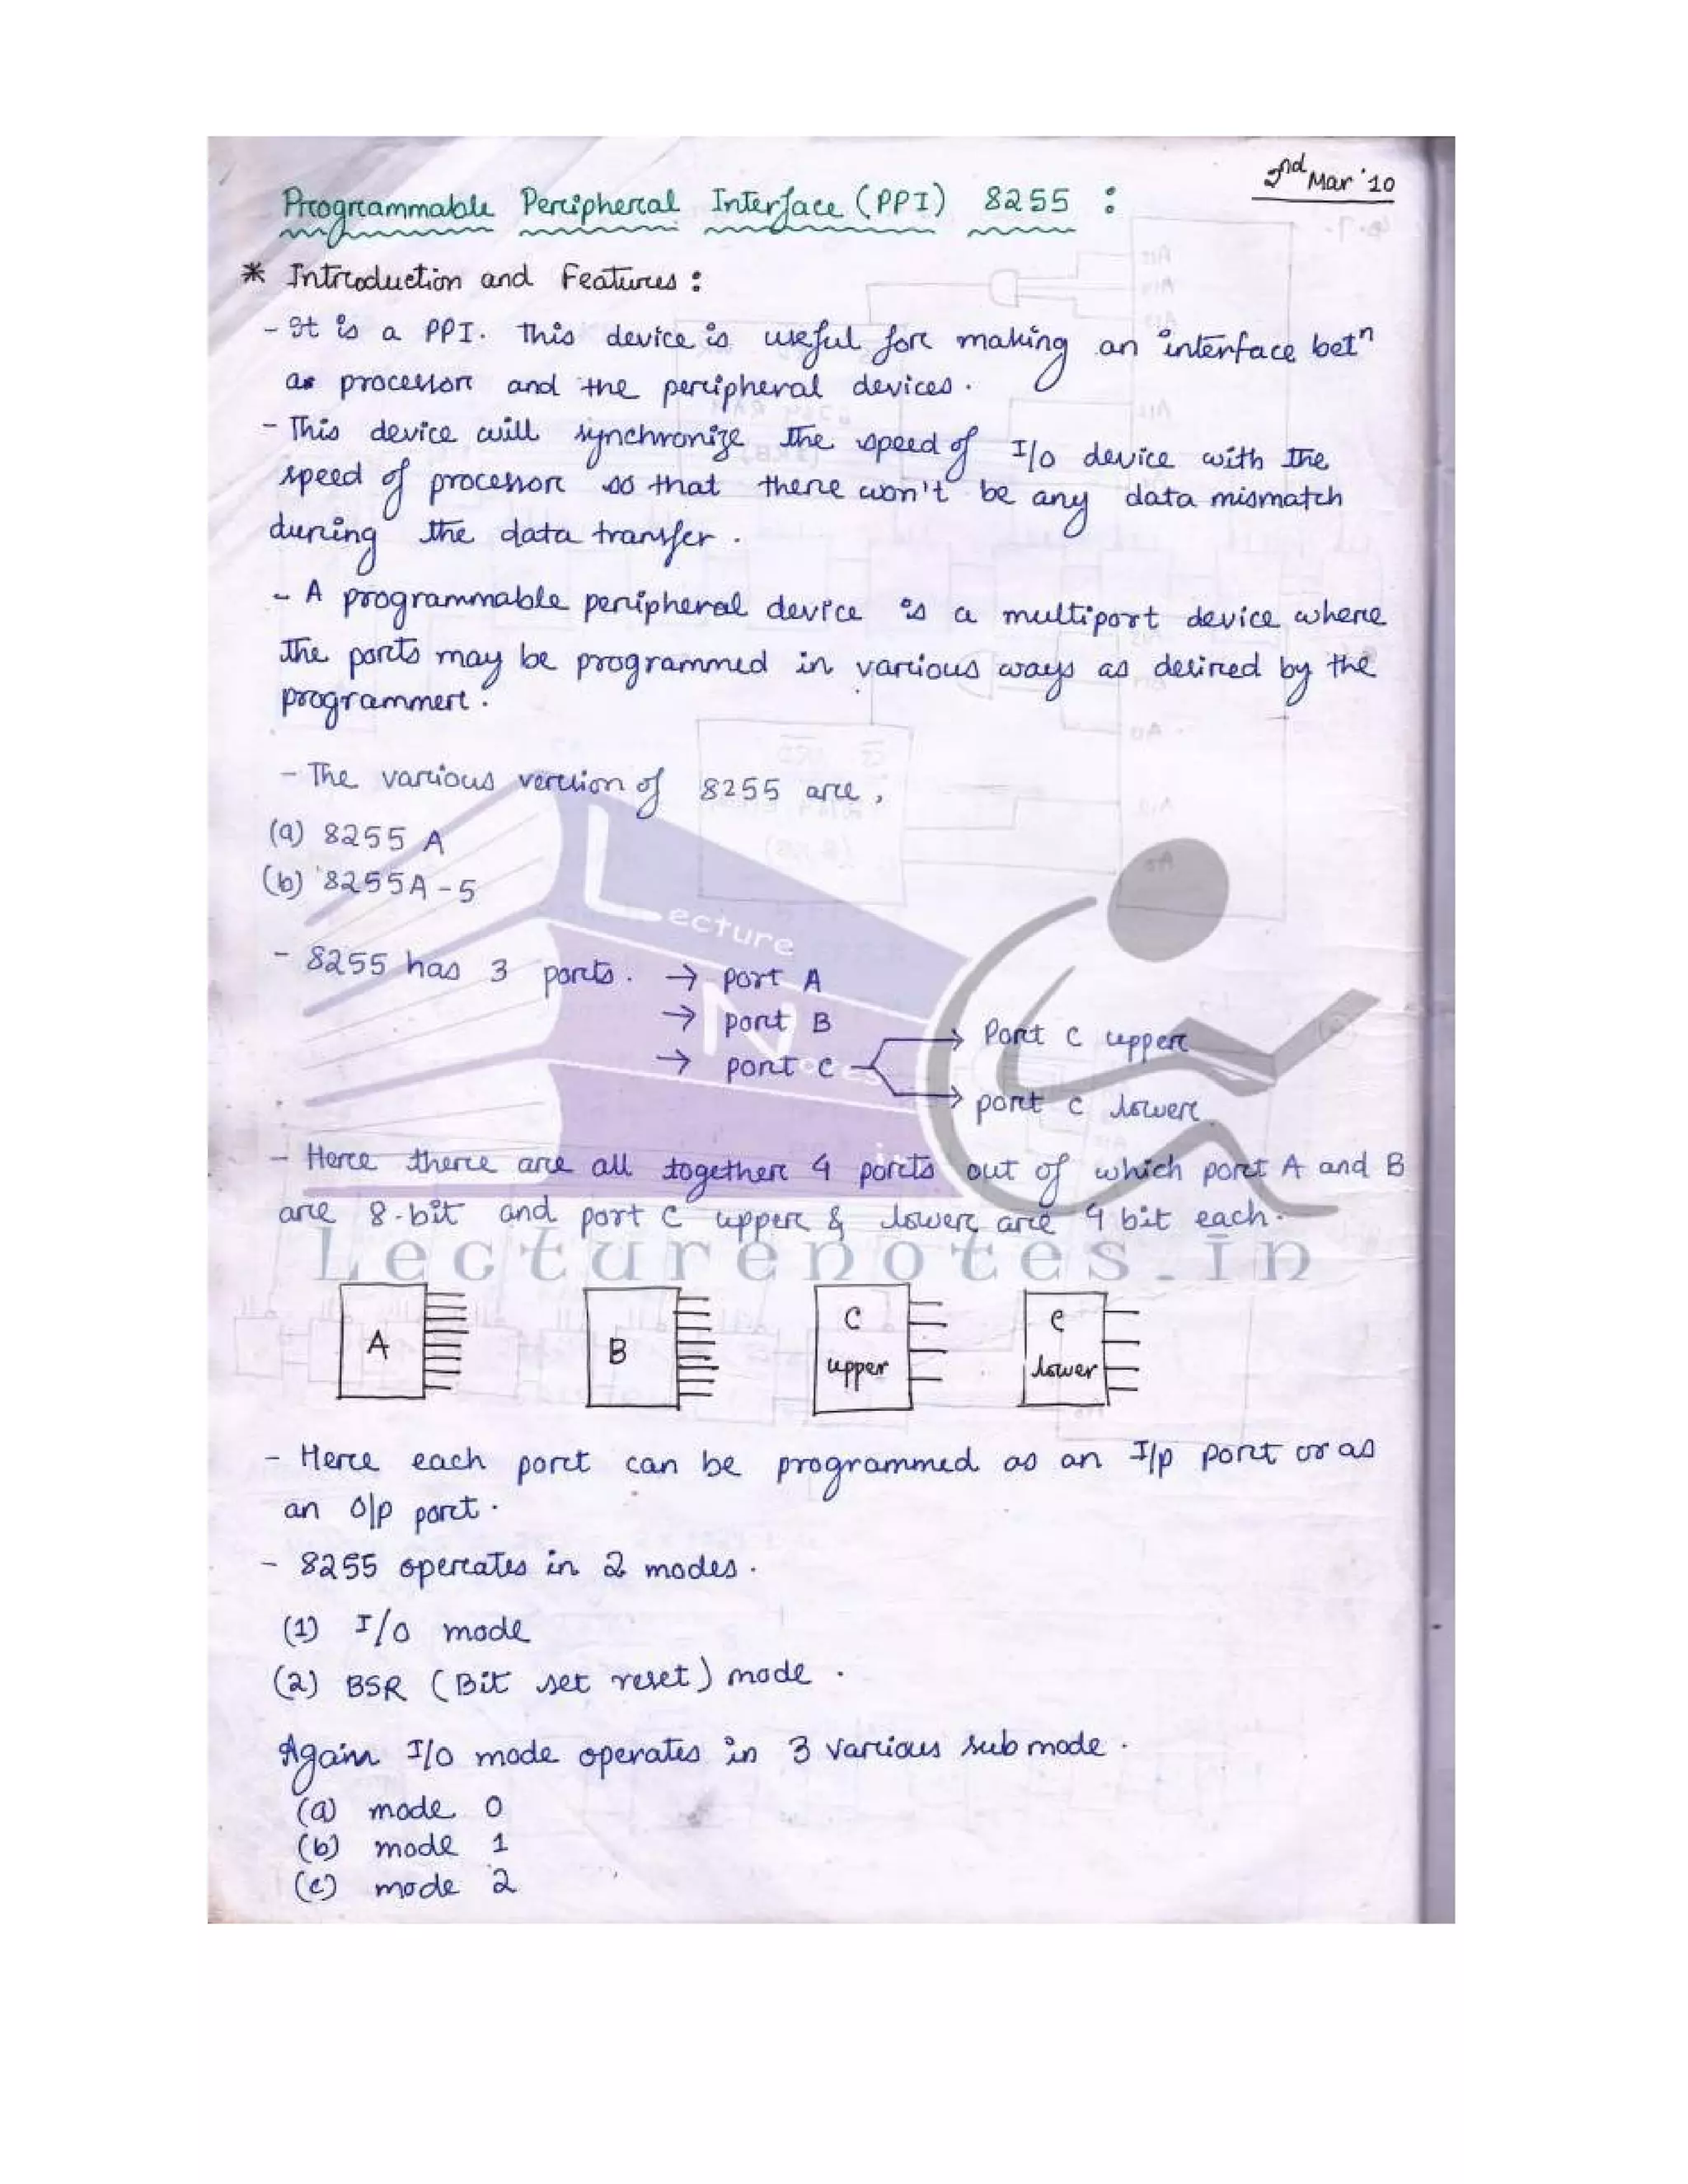 2nd Mar '10
Programmable Peripheral Interface (PPI) 8255 :
* Introduction and Features :
- It is a PPI. This device is useful for making an interface betn
a processor and the peripheral devices.
- This device will synchronize the speed of I/o device with the
speed of processor so that there won't be any data mismatch
during the data transfer.
- A programmable peripheral device is a multiport device where
the ports may be programmed in various ways as desired by the
programmer.
- The various version of 8255 are,
(a) 8255 A
(b) 8255A-5
Lecture
- 8255 has 3 ports. → port A
→ port B
Notes
→ port C → Port C upper
→ port C lower
- Here there are all together 4 ports out of which port A and B
are 8-bit and port C upper & lower are 4 bit each.
Lecturenotes.in
A B C upper C lower
- Here each port can be programmed as an I/p port or as
an O/p port.
- 8255 operates in 2 modes.
(1) I/O mode
(2) BSR (Bit set reset) mode.
Again I/O mode operates in 3 various sub mode.
(a) mode 0
(b) mode 1
(c) mode 2